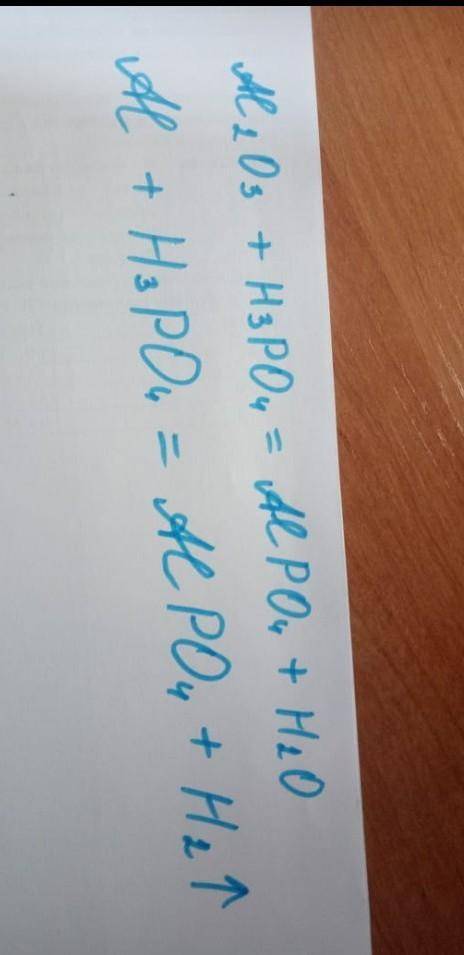 Al₂O₃ + H₃PO₄ = AlPO₄ + H₂O
Al + H₃PO₄ = AlPO₄ + H₂↑